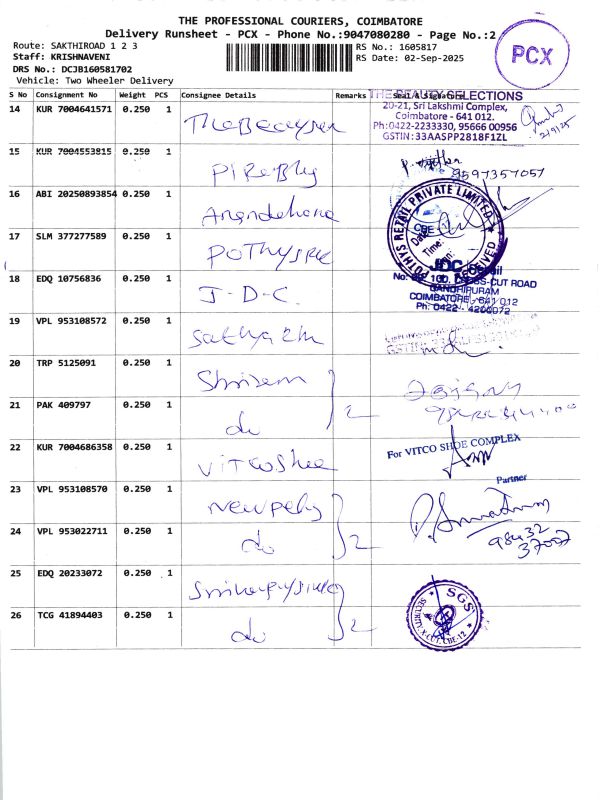 THE PROFESSIONAL COURIERS, COIMBATORE
Delivery Runsheet - PCX - Phone No.:9047080280 - Page No.:2
Route: SAKTHIROAD 1 2 3
RS No.: 1605817
Staff: KRISHNAVENI
RS Date: 02-Sep-2025
DRS No.: DCJB160581702
Vehicle: Two Wheeler Delivery
PCX
S No Consignment No Weight PCS Consignee Details Remarks Seal & Signature
THE BEAUTY SELECTIONS
20-21, Sri Lakshmi Complex,
Coimbatore - 641 012.
Ph:0422-2233330, 95666 00956
GSTIN:33AASPP2818F1ZL
14 KUR 7004641571 0.250 1
2/9/25
15 KUR 7004553815 0.250 1
9597357057
16 ABI 20250893854 0.250 1
POTHYS RETAIL PRIVATE LIMITED
CBE
Date:
Time:
RECEIVED
17 SLM 377277589 0.250 1
18 EDQ 10756836 0.250 1 J-D-C.
JDC Retail
CROSS-CUT ROAD
GANDHIPURAM
COIMBATORE - 641 012
Ph: 0422 - 4200072
19 VPL 953108572 0.250 1
20 TRP 5125091 0.250 1
21 PAK 409797 0.250 1 do 2
22 KUR 7004686358 0.250 1 Vitcoshee
For VITCO SHOE COMPLEX
Partner
23 VPL 953108570 0.250 1
24 VPL 953022711 0.250 1 do 2
98432
37007
25 EDQ 20233072 0.250 1
26 TCG 41894403 0.250 1 do 2
SGS
SECURITY, X-CUT, CBE-12